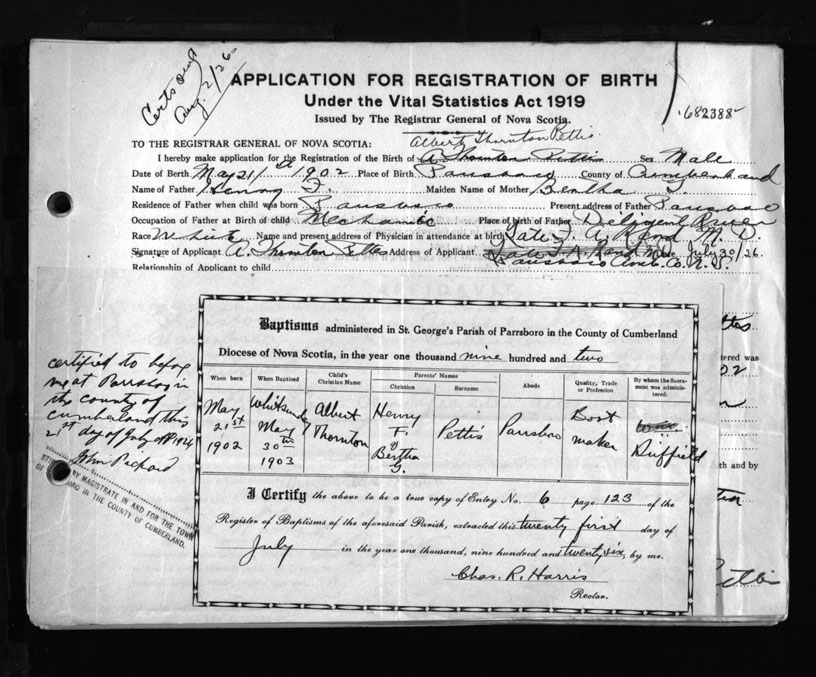 Certs ord
Aug. 2/26
682388
APPLICATION FOR REGISTRATION OF BIRTH
Under the Vital Statistics Act 1919
Issued by The Registrar General of Nova Scotia.
Albert Thornton Pettis
TO THE REGISTRAR GENERAL OF NOVA SCOTIA:
I hereby make application for the Registration of the Birth of A. Thornton Pettis Sex Male
Date of Birth May 21st 1902 Place of Birth Parrsboro County of Cumberland
Name of Father Henry F. Maiden Name of Mother Bertha G
Residence of Father when child was born Parrsboro Present address of Father Parrsboro
Occupation of Father at Birth of child Mechanic Place of birth of Father Deligent River
Race White Name and present address of Physician in attendance at birth Late F. A. Rand M. D.
Signature of Applicant A. Thornton Pettis Address of Applicant Date July 30/26.
Parrsboro Cumb. Co. N.S.
Relationship of Applicant to child
Baptisms administered in St. George's Parish of Parrsboro in the County of Cumberland
Diocese of Nova Scotia, in the year one thousand nine hundred and two
When born When Baptised Child's Christian Name Parents' Names Christian Surname Abode Quality, Trade or Profession By whom the Sacrament was administered.
May 21st 1902 Whitsunday May 30th 1903 Albert Thornton Henry F. & Bertha G. Pettis Parrsboro Boot maker Driffield
I Certify the above to be a true copy of Entry No. 6 page 123 of the
Register of Baptisms of the aforesaid Parish, extracted this twenty first day of
July in the year one thousand, nine hundred and twenty six, by me.
Chas. R. Harris
Rector.
certified to before
me at Parrsboro in
the county of
Cumberland this
21st day of July
John Pickard
STIPENDIARY MAGISTRATE IN AND FOR THE TOWN
OF PARRSBORO IN THE COUNTY OF CUMBERLAND.
ttis
tered was
02
th and by
Pettis